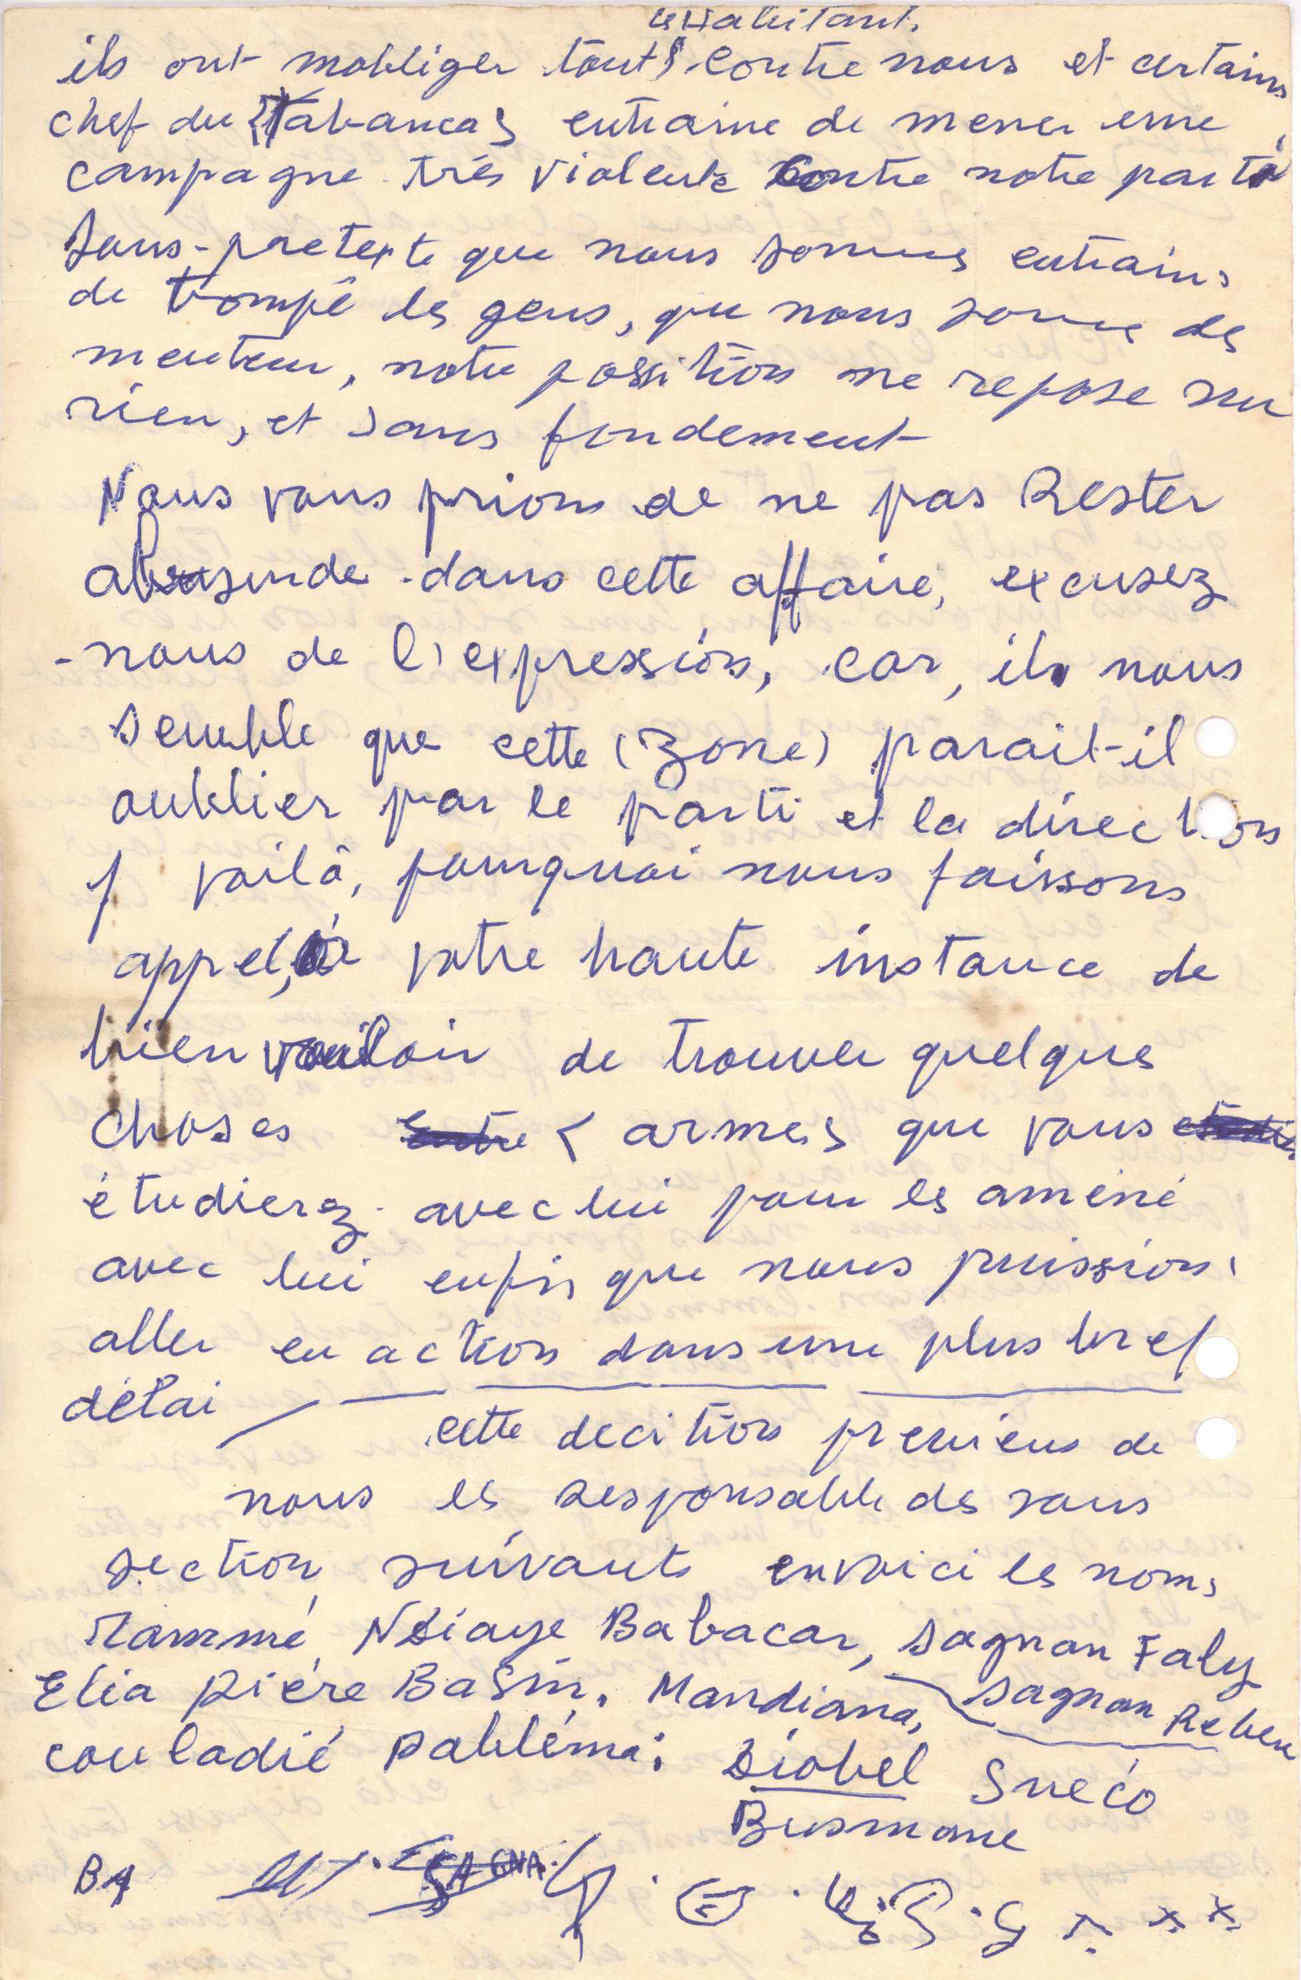 habitant.
ils ont mobliger tout contre nous et certains
chef du Tabancas entraine de mener une
campagne trés violente contre notre parti
sous-pretexte que nous sommes entrains
de trompé les gens, que nous somme des
menteur, notre possition ne repose sur
rien, et sans fondement
Nous vous prions de ne pas Rester
dans cette affaire, excusez
-nous de l'expression, car, il nous
semble que cette (zone) parait-il
oublier par le parti et la direction
voilà, pourquoi nous faissons
appel, à votre haute instance de
bien vouloir de trouver quelques
choses armes que vous
étudierez avec lui pour les améné
avec lui enfin que nous puission
aller en action dans une plus bref
délai
cette decition preniens de
nous les Responsable des sous
section suivants envoici les noms
Mammé Ndiaye Babacar, Sagnan Faly
Elia Piére Basin. Mandiana, Sagnan Reben
couladié Pabléma: Diobel Sneco
Busmane
BA SAGNA.